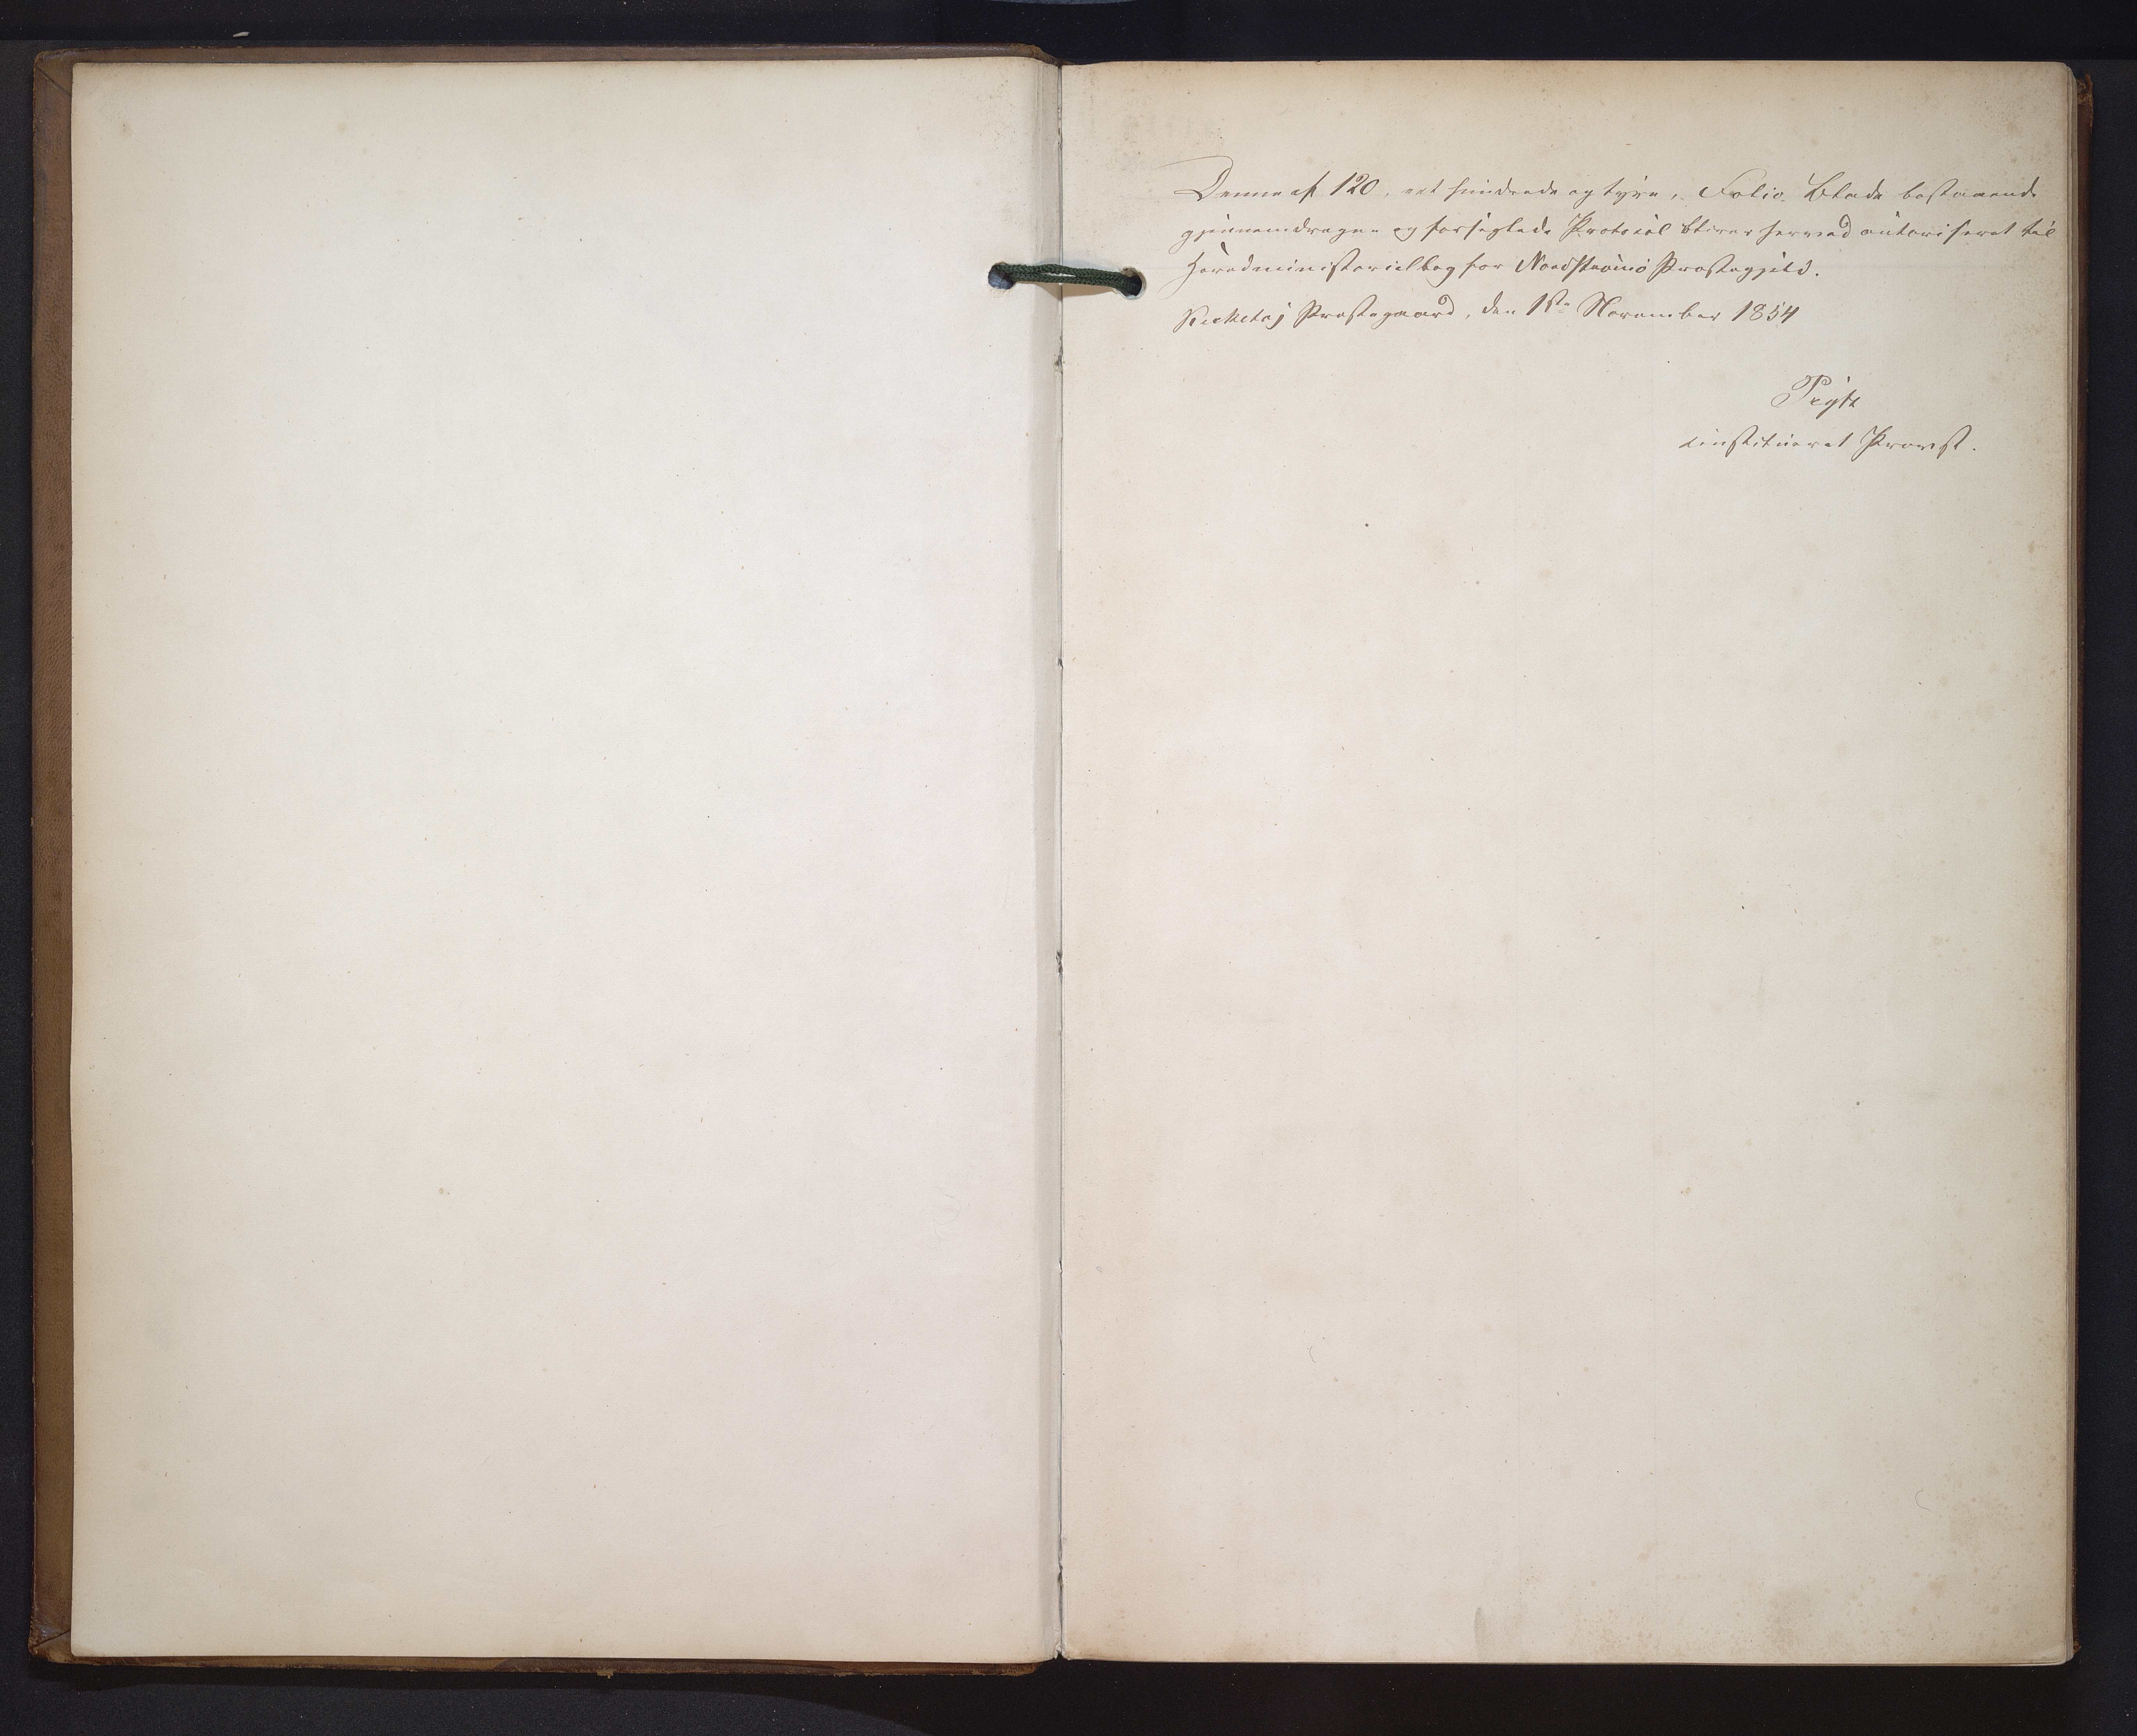 Denne af 120, eet hundrede og tyve, Folio Blade bestaaende
gjennemdragne og forseglede Protocol bliver herved autoriseret til
Hovedministerialbog for Nordstrømø Præstegjeld.
Præstegaard, den 1ste November 1854
constitueret Provst.